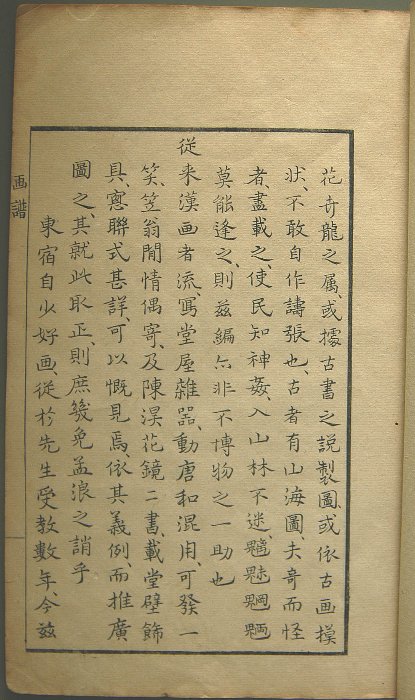 花卉龍之属、或據古書之説製圖、或依古画模
状、不敢自作譸張也、古者有山海圖、夫奇而怪
者、盡載之、使民知神姦、入山林不迷、魑魅魍魎
莫能逢之、則茲編亦非不博物之一助也
従来漢画者流、寫堂屋雑器、動唐和混用、可發一
笑、笠翁閒情偶寄、及陳淏花鏡二書、載堂壁飾
具、窓聯式甚詳、可以慨見焉、依其義例、而推廣
圖之、其就此取正、則庶幾免孟浪之誚乎
東宿自少好画、従於先生受教數年、今茲
画譜